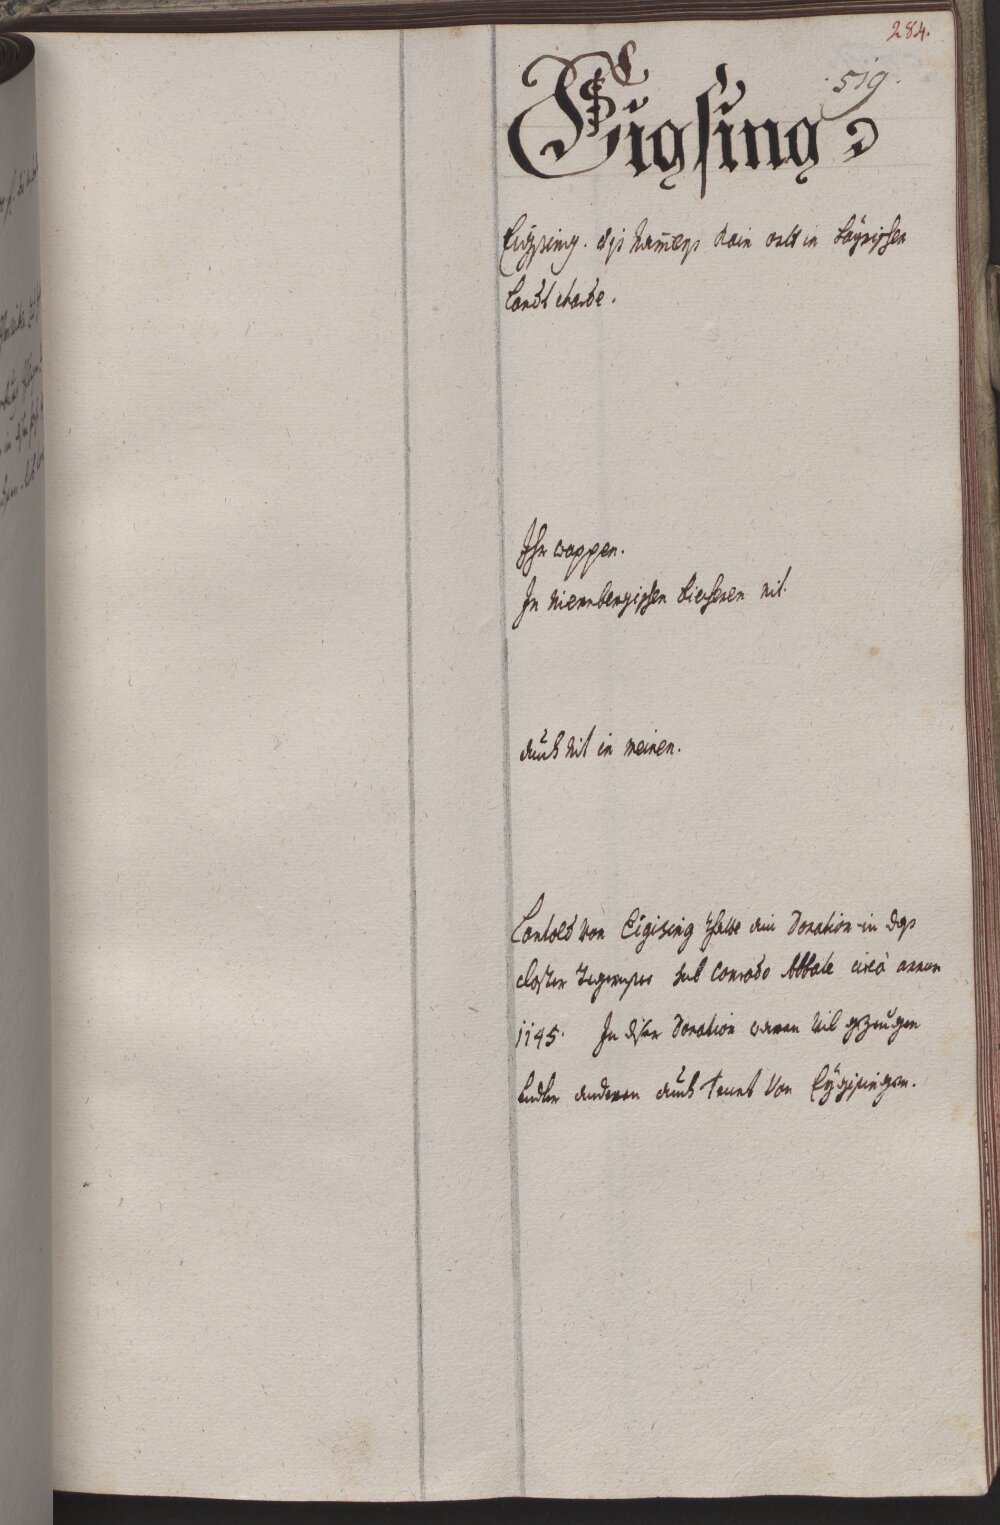 284.
519.
Eigsing
Eigsing. diss Namens kein ortt in Bayrischen
Landt charte.
Ihr wappen.
In Niernbergischen biecheren nit.
auch nit in meinen.
Lantold von Eigising thette ain Donation in das
closter Tegernsee sub Conrado Abbate circà annum
1145. In diser Donation waren vil gezeugen
under anderen auch von Eÿgisingen.